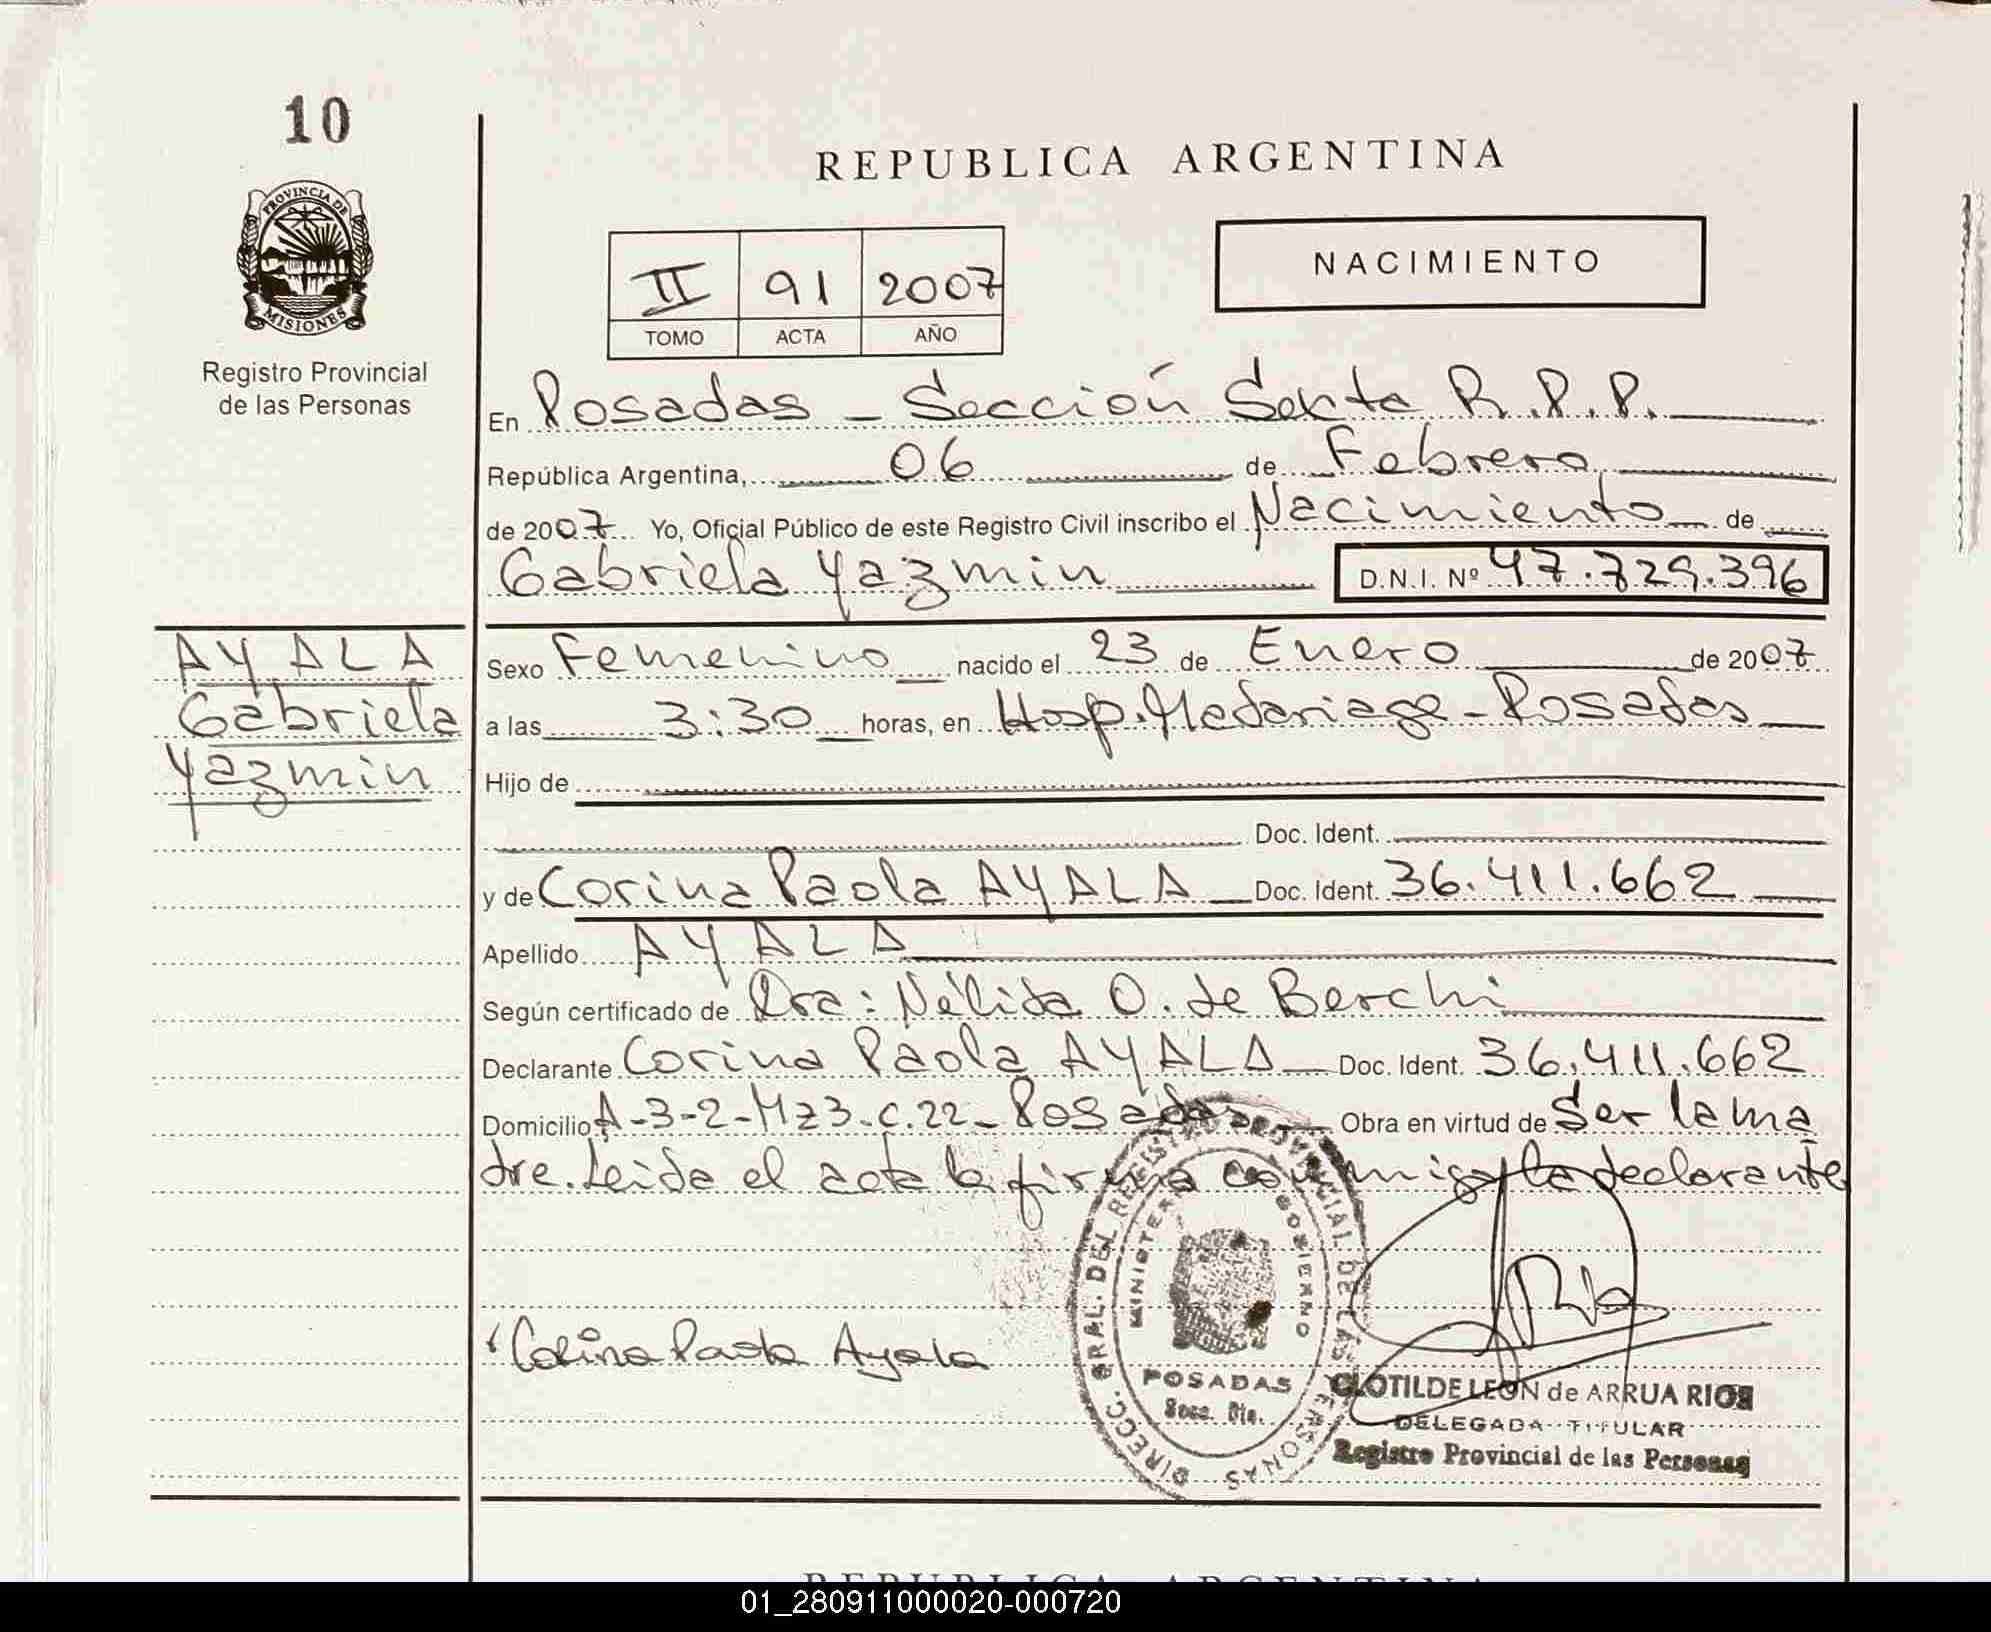 10
PROVINCIA DE
MISIONES
Registro Provincial
de las Personas
REPUBLICA ARGENTINA
II 91 2007
TOMO ACTA AÑO
NACIMIENTO
En Posadas - Sección Sexta R.P.P.
República Argentina, 06 de Febrero
de 2007 Yo, Oficial Público de este Registro Civil inscribo el Nacimiento de
Gabriela Yazmin D.N.I. Nº 47.729.396
AYALA
Gabriela
Yazmin
Sexo Femenino nacido el 23 de Enero de 2007
a las 3:30 horas, en Hosp. Madariaga - Posadas
Hijo de
Doc. Ident.
y de Corina Paola AYALA Doc. Ident. 36.411.662
Apellido AYALA
Según certificado de Dra: Nélida O. de Berchi
Declarante Corina Paola AYALA Doc. Ident. 36.411.662
Domicilio A-3-2-Mz3-C.22- Posadas Obra en virtud de Ser la ma
dre. Leida el acta la firma conmigo la declarante
Corina Paola Ayala
DIRECC. GRAL. DEL REGISTRO PROVINCIAL DE LAS PERSONAS
MINISTERIO GOBIERNO
POSADAS
Secc. 6ta.
CLOTILDE LEON de ARRUA RIOS
DELEGADA TITULAR
Registro Provincial de las Personas
REPUBLICA ARGENTINA
01_280911000020-000720